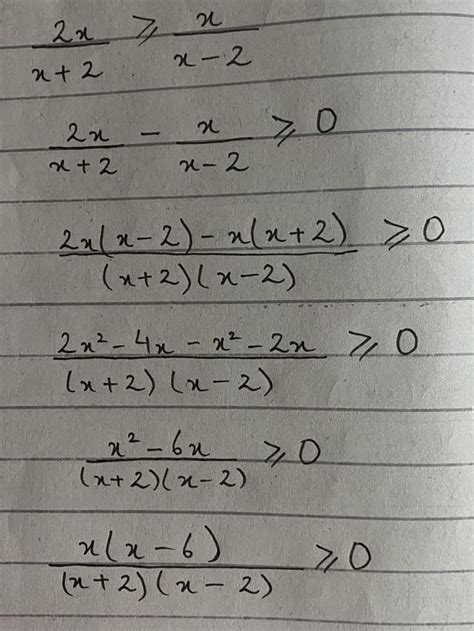 2x/(x+2) ⩾ x/(x-2)
2x/(x+2) - x/(x-2) ⩾ 0
(2x(x-2) - x(x+2))/((x+2)(x-2)) ⩾ 0
(2x² - 4x - x² - 2x)/((x+2)(x-2)) ⩾ 0
(x² - 6x)/((x+2)(x-2)) ⩾ 0
x(x-6)/((x+2)(x-2)) ⩾ 0